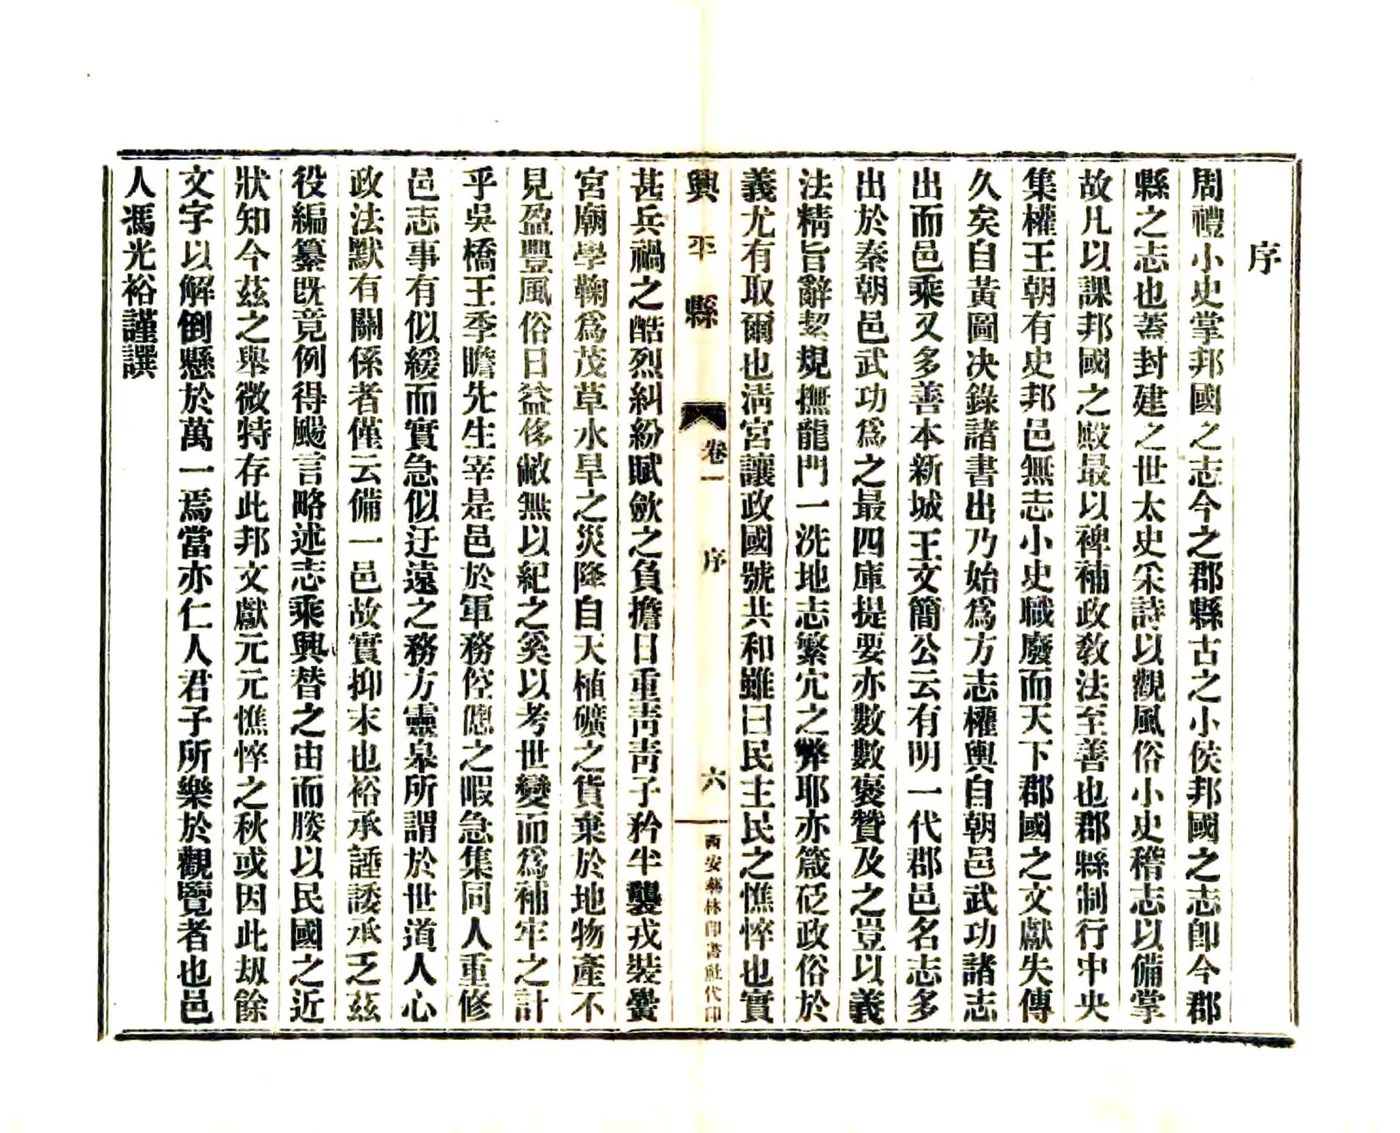 序
周禮小史掌邦國之志今之郡縣古之小侯邦國之志卽今郡
縣之志也蓋封建之世太史采詩以觀風俗小史稽志以備掌
故凡以課邦國之殿最以裨補政敎法至善也郡縣制行中央
集權王朝有史邦邑無志小史職廢而天下郡國之文獻失傳
久矣自黃圖决錄諸書出乃始爲方志權輿自朝邑武功諸志
出而邑乘又多善本新城王文簡公云有明一代郡邑名志多
出於秦朝邑武功爲之最四庫提要亦數數褒贊及之豈以義
法精旨辭絜規撫龍門一洗地志繁宂之弊耶亦箴砭政俗於
義尤有取爾也淸宮讓政國號共和雖曰民主民之憔悴也實
興平縣 卷一 序 六 西安藝林印書社代印
甚兵禍之酷烈糾紛賦斂之負擔日重靑靑子衿半襲戎裝黌
宮廟學鞠爲茂草水旱之災降自天植礦之貨棄於地物產不
見盈豐風俗日益侈敝無以紀之奚以考世變而爲補牢之計
乎吳橋王季瞻先生宰是邑於軍務倥傯之暇急集同人重修
邑志事有似緩而實急似迂遠之務方靈皋所謂於世道人心
政法默有關係者僅云備一邑故實抑末也裕承諈諉承乏茲
役編纂旣竟例得颺言略述志乘興替之由而媵以民國之近
狀知今茲之舉微特存此邦文獻元元憔悴之秋或因此刼餘
文字以解倒懸於萬一焉當亦仁人君子所樂於觀覽者也邑
人馮光裕謹譔